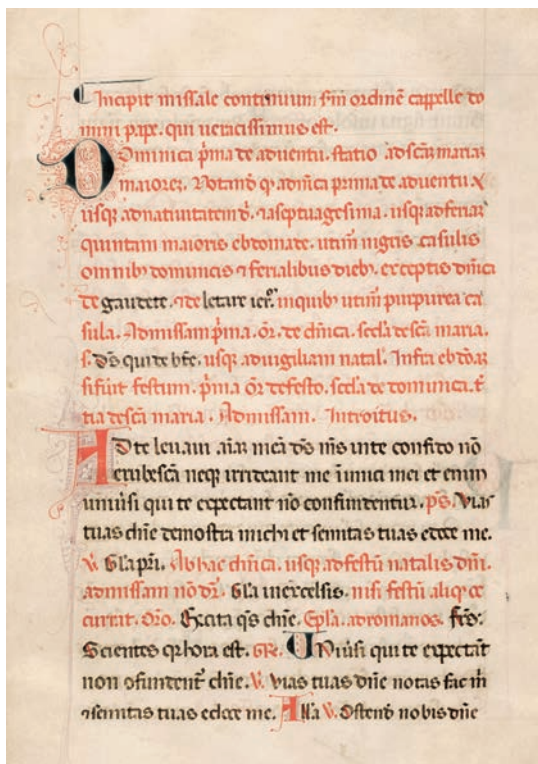 Incipit missale continuum scdm ordinē cappelle do
mini pape. qui ueracissimus est.
Dominica p̄ma de aduentu. statio ad scām mariā
maiorez. Notand q̄ a dn̄ica prima de aduentu x̄
usq; ad natiuitatem d. ⁊ a septuagesima. usq; ad feriaꝫ
quintam maioris ebdomade. utim̄ nigris casulis
omnib; dominicis ⁊ ferialibus dieb;. exceptis dn̄ica
de gaudete. ⁊ de letare ier̄. in quib; utim̄ purpurea ca
sula. Ad missam p̄ma. or̄. de dn̄ica. scd̄a de scā maria.
s. ds̄ qui de bt̄e. usq; ad uigiliam natal. Infra ebdoaꝫ
si fiūt festum. p̄ma or̄ de festo. scd̄a de dominica. t̄
tia de scā maria. Ad missam. Introitus.
AD te leuaui aīaꝫ meā ds̄ ms̄ in te confido nō
erubescā neq; irrideant me īimici mei et enim
uniūsi qui te expectant nō confundentur. ps̄. Vias
tuas dn̄e demostra michi et semitas tuas edoce me.
℣. Gl̄a pr̄i. Ab hac dn̄ica. usq; ad festū natalis dn̄i.
ad missam nō dr̄. Gl̄a in excelsis. nisi festū aliq̄ oc
currat. Or̄o. Excita qs̄ dn̄e. Ep̄la. ad romanos. Frs̄.
Scientes qr̄ hora est. GR̄. Uniūsi qui te expectāt
non ɔfundent̄ dn̄e. ℣. Vias tuas dn̄e notas fac m̄
⁊ semitas tuas edoce me. Al̄l̄a ℣. Ostend nobis dn̄e